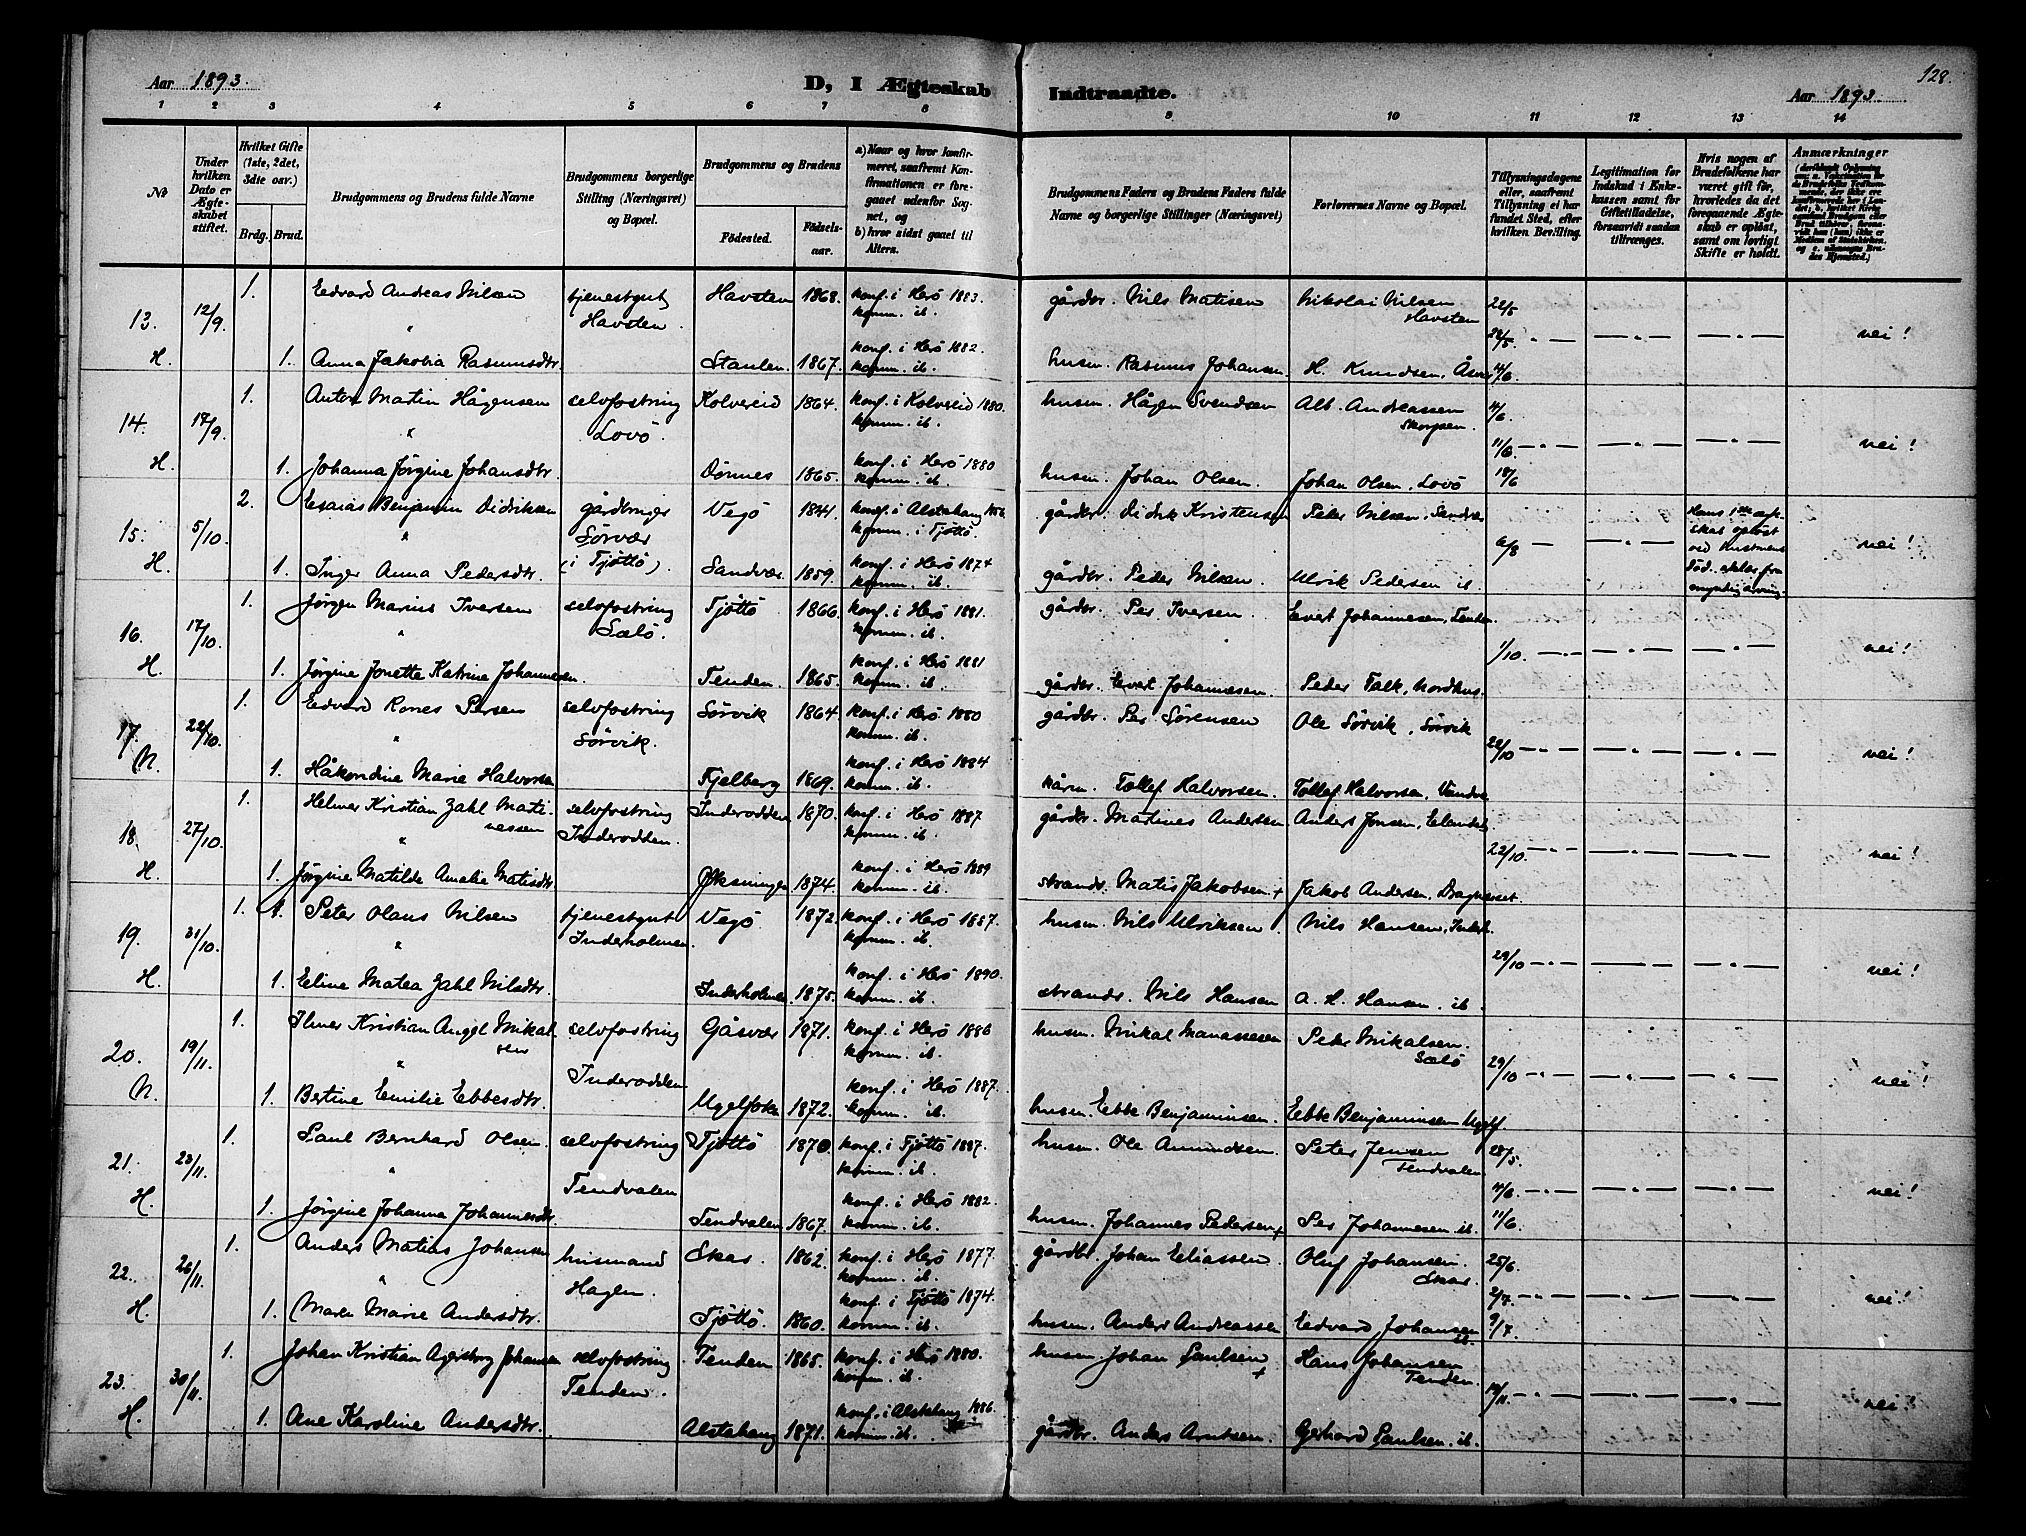 128.
Aar 1893.
D, I Ægteskab Indtraadte.
Aar 1893.
1 2 3 4 5 6 7 8 9 10 11 12 13 14
No
Under hvilken Dato er Ægteskabet stiftet.
Hvilket Gifte (1ste, 2det, 3die osv.)
Brdg. Brud.
Brudgommens og Brudens fulde Navne
Brudgommens borgerlige Stilling (Næringsvei) og Bopæl.
Brudgommens og Brudens
Fødested.
Fødselsaar.
a) Naar og hvor konfirmeret, saafremt Konfirmationen er foregaaet udenfor Sognet, og
b) hvor sidst gaaet til Alters.
Brudgommens Faders og Brudens Faders fulde Navne og borgerlige Stillinger (Næringsvei)
Forlovernes Navne og Bopæl.
Tillysningsdagene eller, saafremt Tillysning ei har fundet Sted, efter hvilken Bevilling.
Legitimation for Indskud i Enkekassen samt for Giftetilladelse, forsaavidt saadan tiltrænges.
Hvis nogen af Brudefolkene har været gift før, hvorledes da det foregaaende Ægteskab er opløst, samt om lovligt Skifte er holdt.
Anmærkninger
13. 12/9. 1. Edvard Andreas Nilsen tjenestgut Havsten Havsten 1868. konf. i Herö 1883. komm. ib. gårdbr. Nils Matisen Nikolai Nilsen Havsten 22/5 28/5. nei!
H. 1. Anna Jakobia Rasmusdtr. Staulen 1867. konf. i Herö 1882. komm. ib. husm. Rasmus Johansen H. Knudsen, Åsvær 4/6.
14. 17/9. 1. Anton Martin Hågensen selvfostring Lovö. Kolvereid 1864. konf. i Kolvereid 1880. komm. ib. husm. Hågen Svendsen Alb. Andreassen Skorpen. 4/6 11/6. nei!
H. 1. Johanna Jörgine Johansdtr. Dönnes 1865. konf. i Herö 1880 komm. ib. husm. Johan Olsen. Johan Olsen, Lovö 18/6
15. 5/10. 2. Esaias Benjamin Didriksen gårdbruger Sörvær (i Tjöttö). Vegö 1841. konf. i Alstahaug komm. i Tjöttö. gårdbr. Didrik Kristensen Peter Nilsen, Sandvær 6/8 Hans 1ste ægteskab oplöst ved hustruens Död. nei!
H. 1. Inger Anna Pedersdtr. Sandvær. 1859. konf. i Herö 1874 komm. ib. gårdbr. Peder Nilsen. Ulrik Pedersen ib.
16. 17/10. 1. Jörgen Marius Iversen selvfostring Sælö. Tjöttö 1866. konf. i Herö 1881. komm. ib. gårdbr. Per Iversen Evert Johannesen, Tenden 1/10. nei!
H. 1. Jörgine Jonette Katrine Johannesen Tenden. 1865. konf. i Herö 1881 komm. ib. gårdbr. Evert Johannesen. Peder Falk, Nordhus.
17. 22/10. 1. Edvard Rones Persen selvfostring Sörvik. Sörvik 1864. konf. i Herö 1880 komm. ib. gårdbr. Per Sörensen Ole Sörvik, Sörvik 22/10 nei!
N. 1. Håkondine Marie Halvorsen Tjelberg 1869. konf. i Herö 1884 komm. ib. kårm. Tollef Halvorsen. Tollef Halvorsen,
18. 27/10. 1. Helmer Kristian Zahl Matinessen selvfostring Inderodden. Inderodden 1870. konf. i Herö 1887 komm. ib. gårdbr. Matines Andersen Anders Jonsen, 22/10. nei!
H. 1. Jörgine Matilde Amalie Matisdtr Öksningen 1874. konf. i Herö 1889 komm. ib. strands. Matis Jakobsen + Jakob Andersen,
19. 31/10. 1. Peter Olaus Nilsen tjenestgut Inderholmen. Vegö 1872. konf. i Herö 1887. komm. ib. husm. Nils Ulriksen Nils Hansen, Inderh. 29/10 nei!
H. 1. Eline Matea Zahl Nilsdtr. Inderholmen 1875. konf. i Herö 1890. komm. ib. strands. Nils Hansen A. H. Hansen. ib
20. 19/11. 1. Ilmer Kristian Angel Mikalsen selvfostring Inderodden Gåsvær 1871. konf. i Herö 1886 komm. ib. husm. Mikal Manassesen Peder Mikalsen. Sælö 29/10 nei!
N. 1. Bertine Emilie Ebbesdtr. Ugelfoten 1872. konf. i Herö 1887. komm. ib. husm. Ebbe Benjaminsen. Ebbe Benjaminsen Ugelf
21. 23/11. 1. Paul Bernhard Olsen. selvfostring Tendvalen Tjöttö 1870. konf. i Tjöttö 1887. komm. ib. husm. Ole Amundsen. Peter Jensen Tendvalen 28/5. 4/6. nei!
H. 1. Jörgine Johanna Johannesdtr. Tendvalen 1867. konf. i Herö 1882. komm. ib. husm. Johannes Pedersen + Per Johannesen ib. 11/6
22. 26/11. 1. Anders Matias Johansen husmand Hagen. Skar. 1862. konf. i Herö 1877. komm. ib. gårdbr. Johan Eliassen. Oluf Johansen. Skar. 25/6 2/7. nei!
H. 1. Maren Marie Andersdtr. Tjöttö 1860. konf. i Tjöttö 1874. komm. ib. husm. Anders Andreassen Edvard Johansen ib. 9/7
23. 30/11. 1. Johan Kristian Agersborg Johansen selvfostring Tenden. Tenden 1865. konf. i Herö 1880. komm. ib. husm. Johan Paulsen + Hans Johansen Tenden. 19/11. nei!
H. 1. Ane Karoline Andersdtr. Alstahaug 1871. konf. i Alstahaug 1886. komm. ib. gårdbr. Anders Arntsen. Gerhard Paulsen. ib.